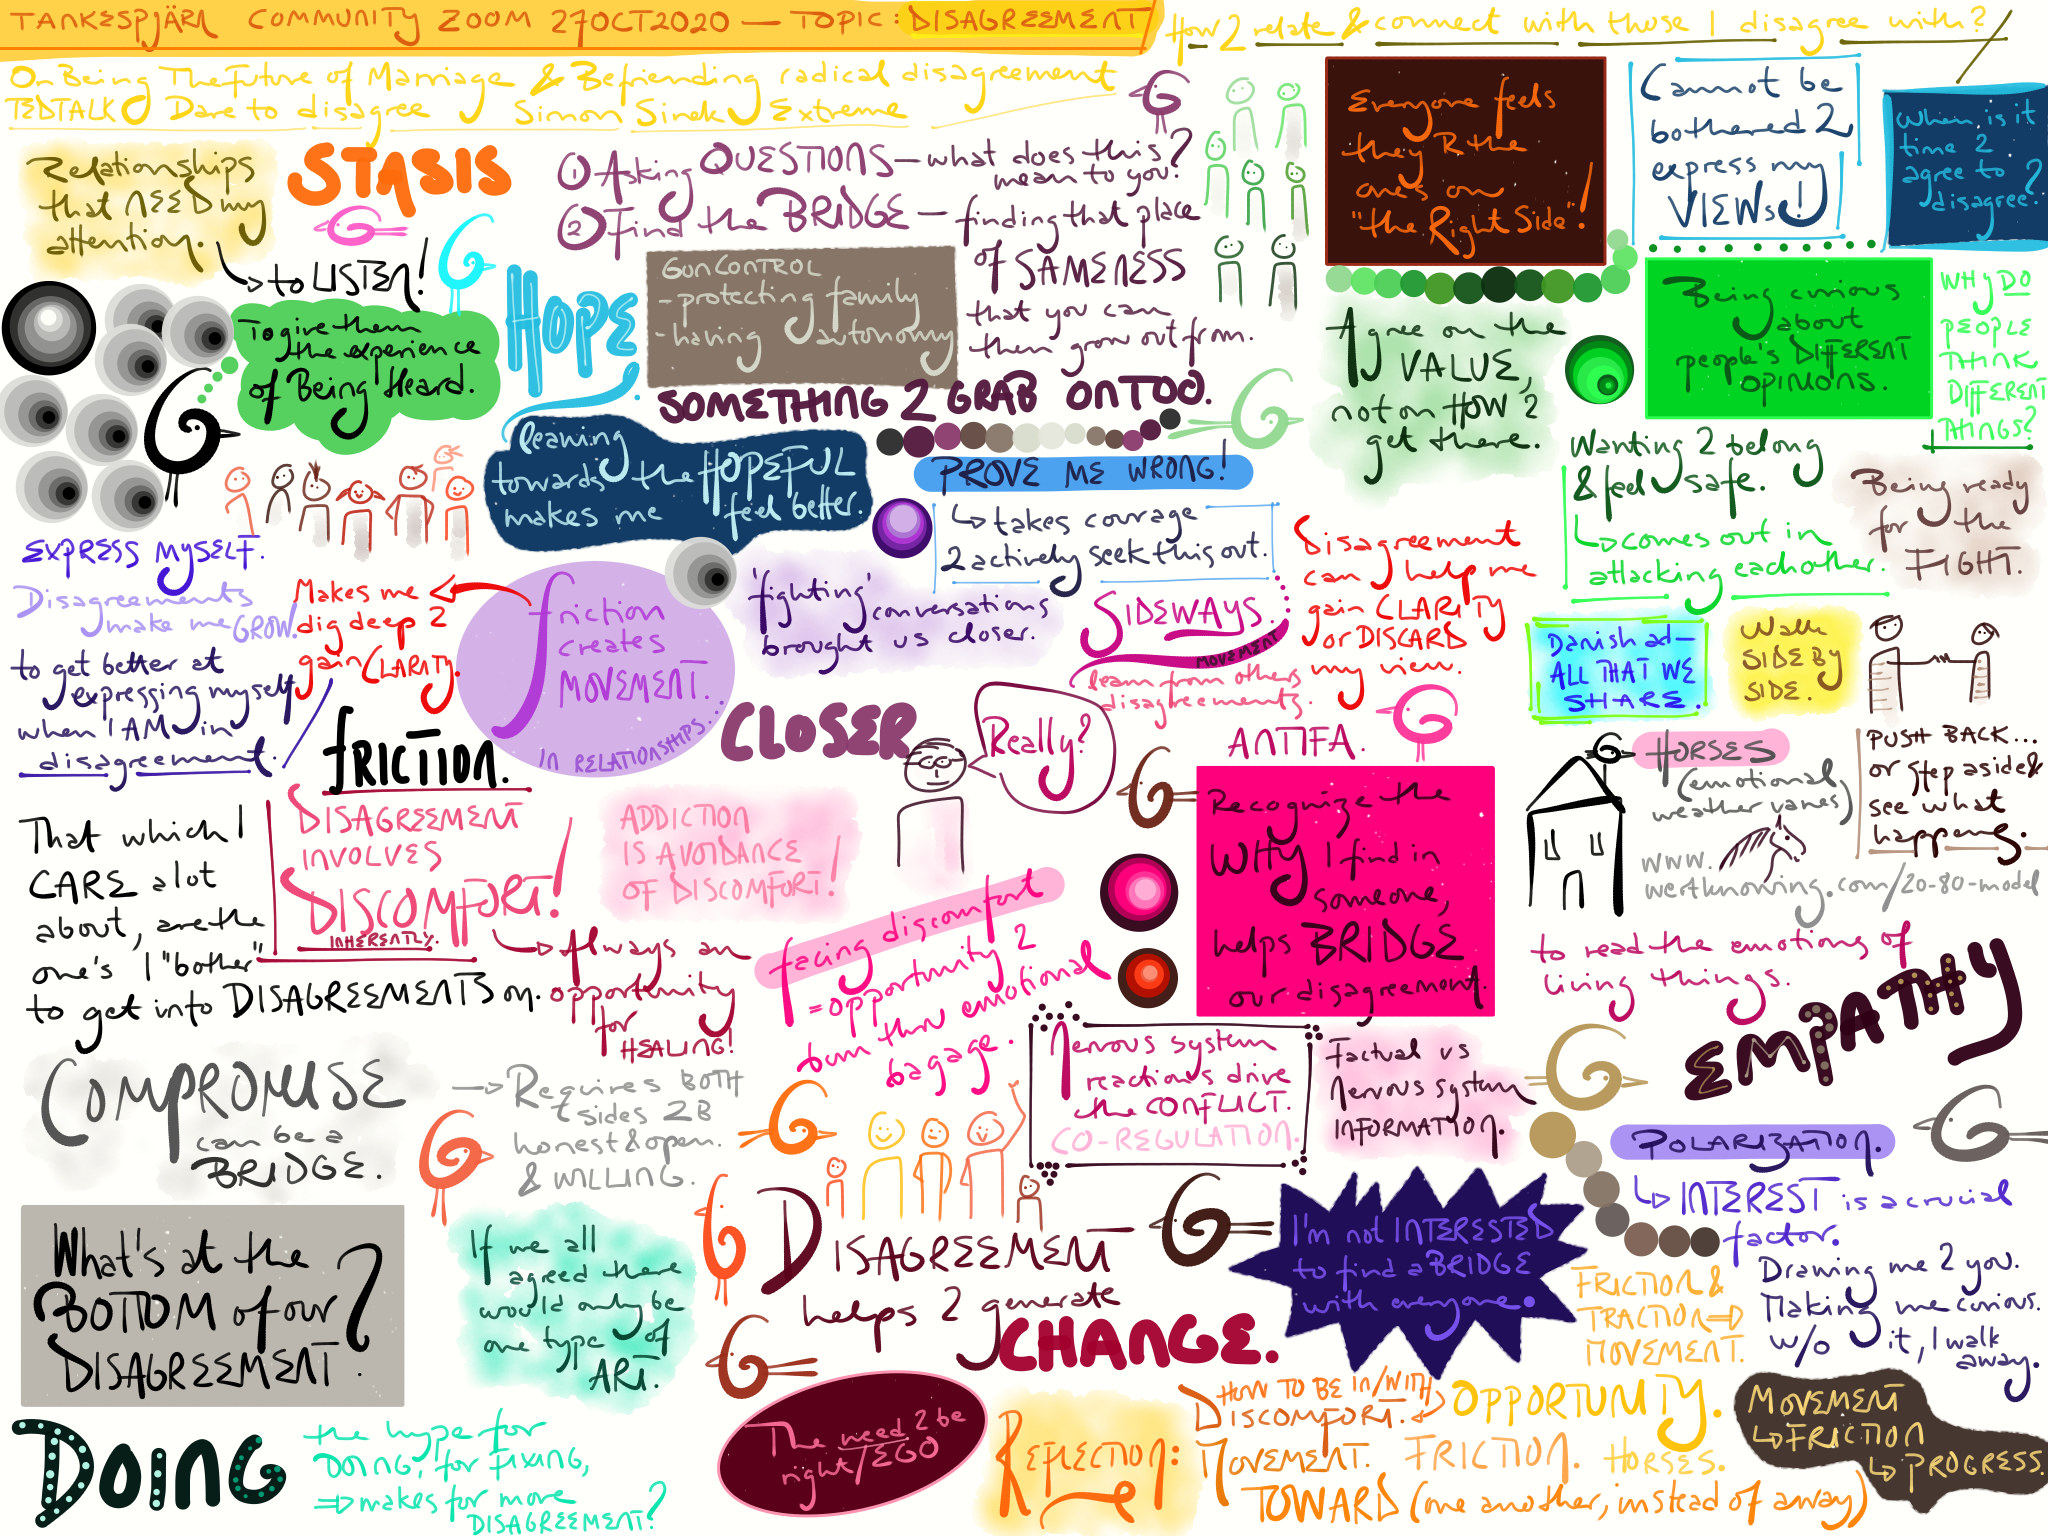 TANKESPJÄRN COMMUNITY ZOOM 27OCT2020 — TOPIC: DISAGREEMENT
How 2 relate & connect with those I disagree with?
On Being The Future of Marriage & Befriending radical disagreement
TEDTALK Dare to disagree Simon Sinek Extreme
Relationships
that NEED my
attention.
to LISTEN!
STASIS
To give them
the experience
of Being Heard.
HOPE
① Asking QUESTIONS — what does this
mean to you?
② Find the BRIDGE — finding that place
of SAMENESS
that you can
then grow out from.
GUN CONTROL
- protecting family
- having autonomy
SOMETHING 2 GRAB ONTOO.
Everyone feels
they R the
one's on
"the Right Side"!
Cannot be
bothered 2
express my
VIEWs!
When is it
time 2
agree to
disagree?
Agree on the
VALUE,
not on HOW 2
get there.
Being curious
about
people's DIFFERENT
OPINIONS.
WHY DO
PEOPLE
THINK
DIFFERENT
THINGS?
leaning
towards the HOPEFUL
makes me feel better.
PROVE ME WRONG!
takes courage
2 actively seek this out.
Wanting 2 belong
& feel safe.
comes out in
attacking eachother.
Being ready
for the
FIGHT.
EXPRESS MYSELF.
Disagreements
make me GROW!
to get better at
expressing myself
when I AM in
disagreement.
Makes me
dig deep 2
gain CLARITY.
friction
creates
MOVEMENT.
IN RELATIONSHIPS...
'fighting'
conversations
brought us closer.
CLOSER
SIDEWAYS.
MOVEMENT
learn from others
disagreements.
Disagreement
can help me
gain CLARITY
or DISCARD
my view.
Danish ad—
ALL THAT WE
SHARE.
Walk
SIDE BY
SIDE.
FRICTION.
Really?
ANTIFA.
HORSES
(emotional
weather vanes)
www.
wertknowing.com/20-80-model
PUSH BACK...
or step aside &
see what
happens.
to read the emotions of
living things.
EMPATHY
That which I
CARE alot
about, are the
one's I "bother"
to get into DISAGREEMENTS on.
DISAGREEMENT
INVOLVES
DISCOMFORT!
INHERENTLY.
Always an
opportunity
for
HEALING!
ADDICTION
IS AVOIDANCE
OF DISCOMFORT!
facing discomfort
=opportunity 2
burn thru emotional
bagage.
Recognize the
WHY I find in
someone,
helps BRIDGE
our disagreement.
Nervous system
reactions drive
the CONFLICT.
CO-REGULATION.
Factual vs
Nervous system
INFORMATION.
COMPROMISE
can be a
BRIDGE.
Requires BOTH
sides 2B
honest & open.
& WILLING.
POLARIZATION.
INTEREST is a crucial
factor.
Drawing me 2 you.
Making me curious.
w/o it, I walk
away.
What's at the
BOTTOM of our
DISAGREEMENT?
If we all
agreed there
would only be
one type of
ART.
DISAGREEMENT
helps 2 generate
CHANGE.
I'm not INTERESTED
to find a BRIDGE
with everyone.
FRICTION &
TRACTION ⇒
MOVEMENT.
DOING
the hype for
DOING, for FIXING,
⇒ makes for more
DISAGREEMENT?
The need 2 be
right/EGO
REFLECTION:
HOW TO BE IN/WITH
DISCOMFORT.
OPPORTUNITY.
MOVEMENT. FRICTION. HORSES.
TOWARD (one another, instead of away)
MOVEMENT
FRICTION
PROGRESS.